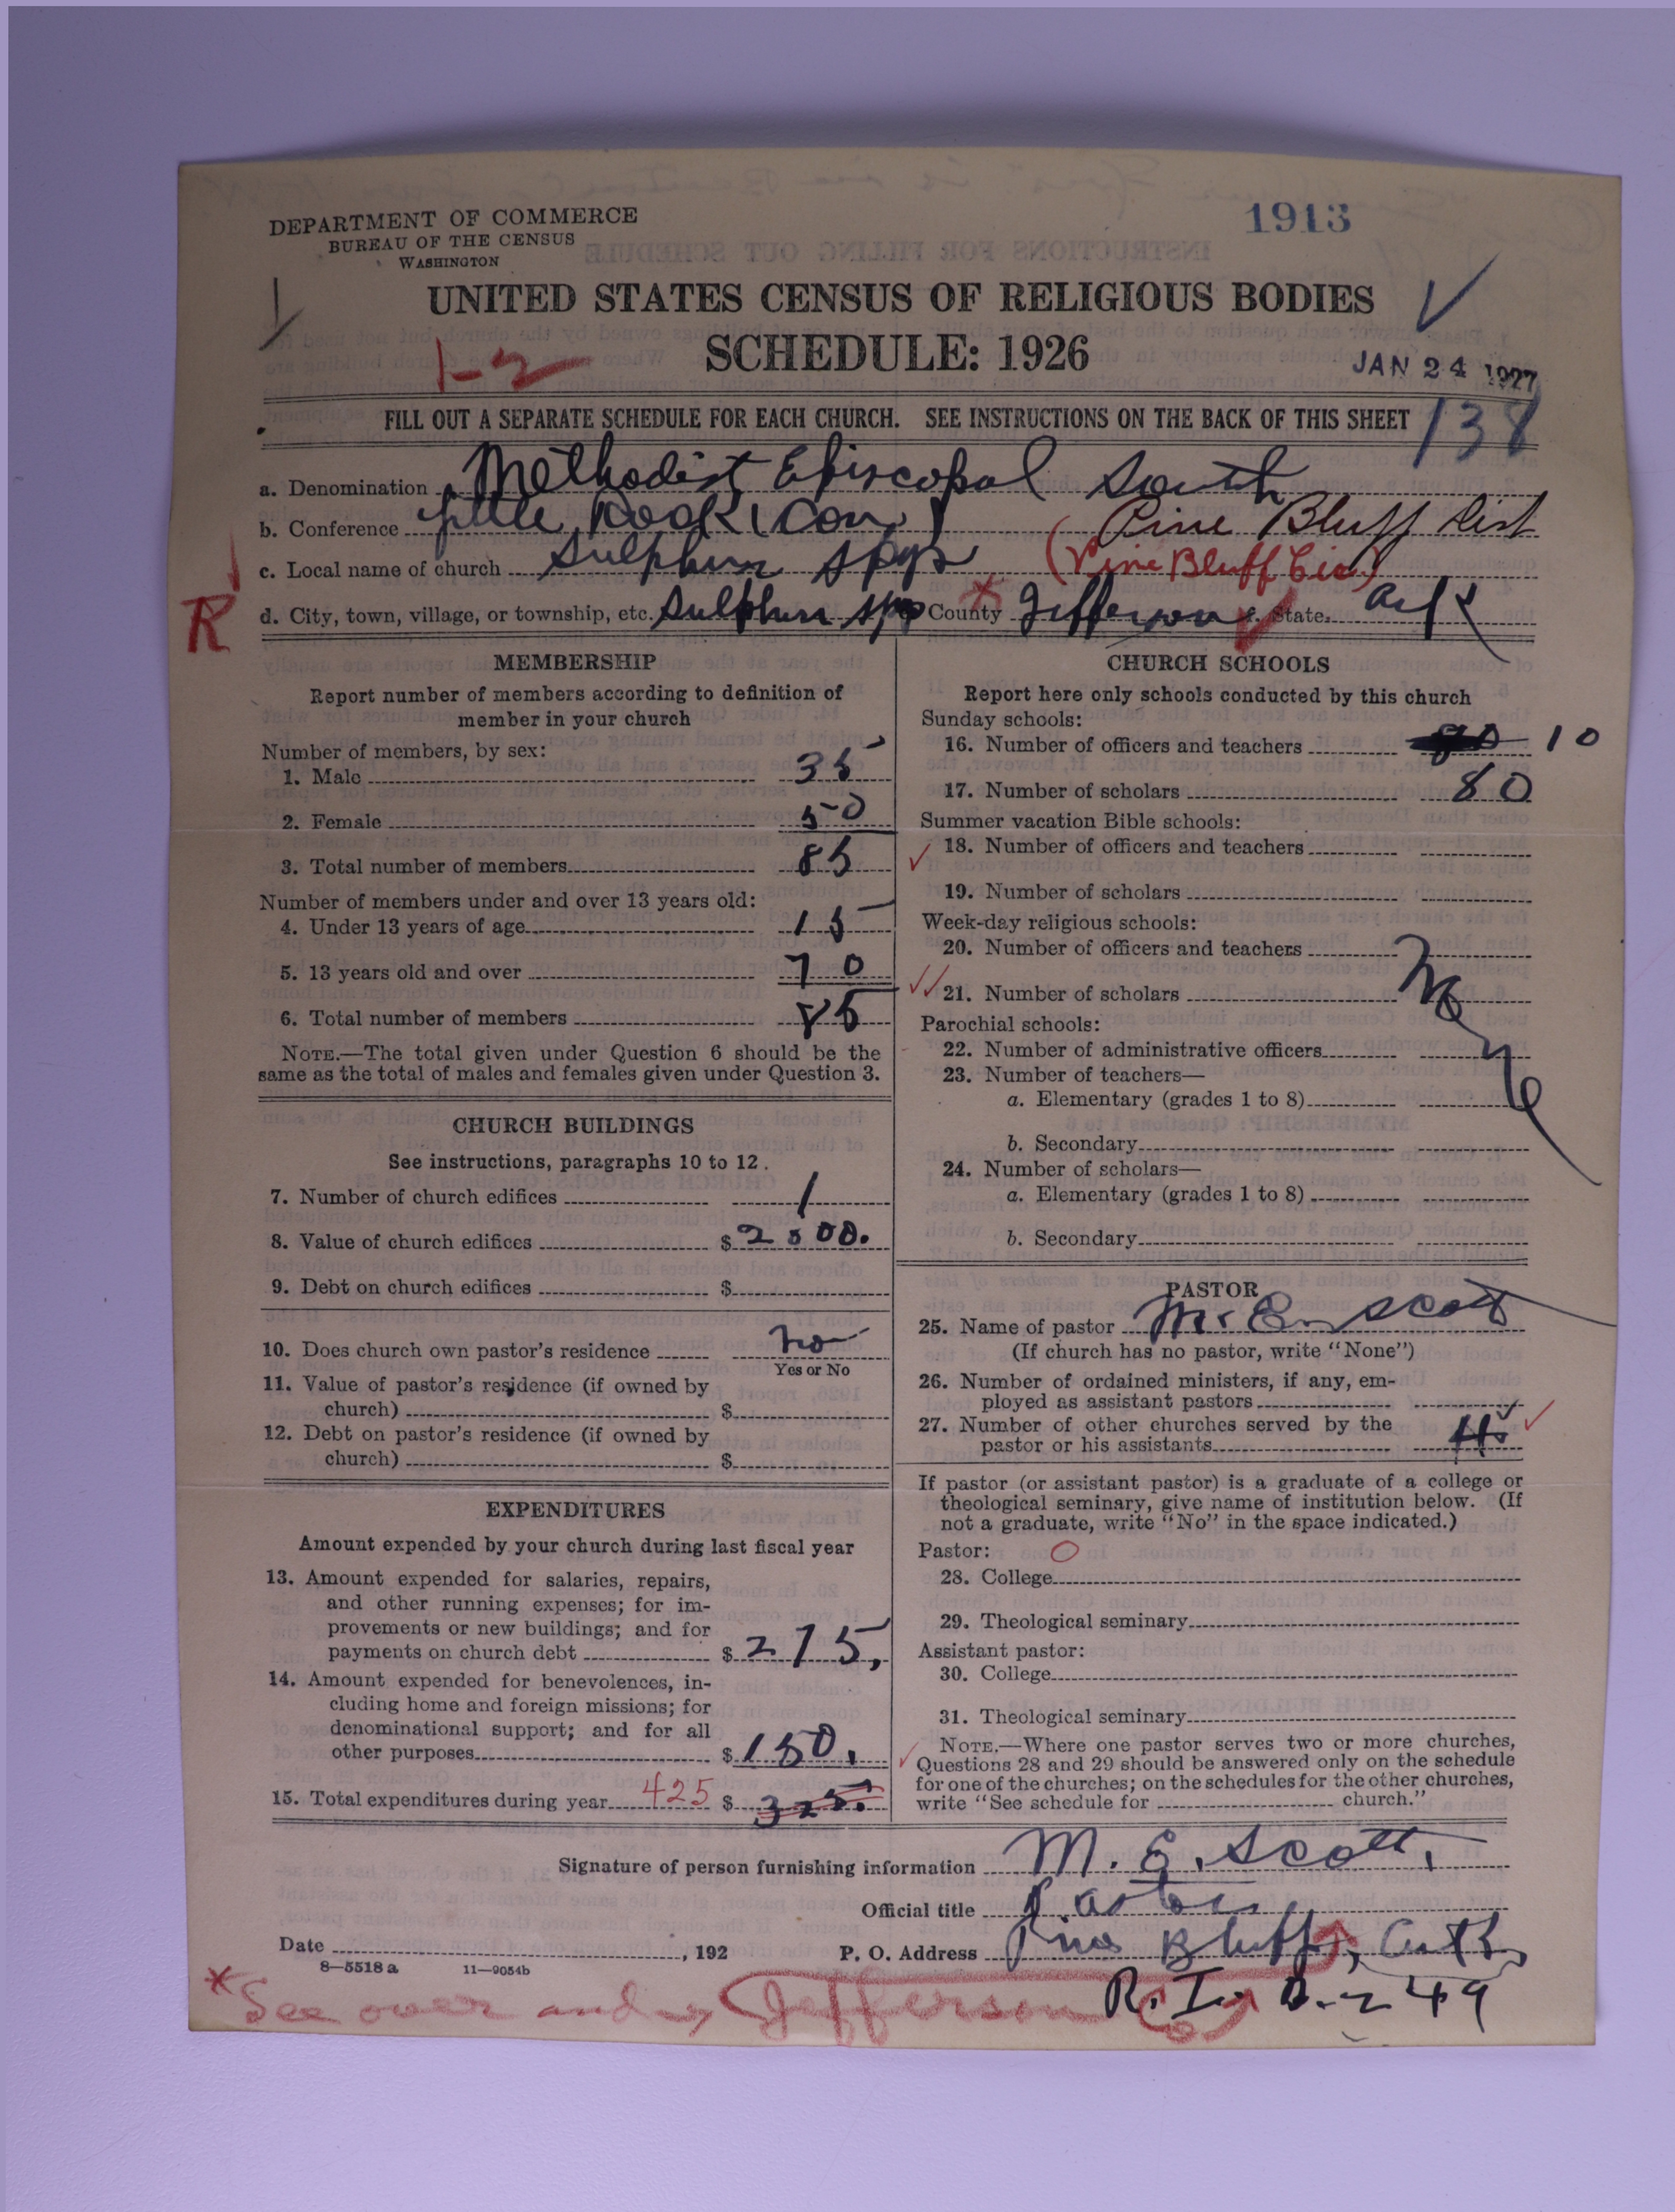 DEPARTMENT OF COMMERCE
BUREAU OF THE CENSUS
WASHINGTON
1913
UNITED STATES CENSUS OF RELIGIOUS BODIES
SCHEDULE: 1926
1-2
JAN 24 1927
FILL OUT A SEPARATE SCHEDULE FOR EACH CHURCH. SEE INSTRUCTIONS ON THE BACK OF THIS SHEET
138
a. Denomination Methodist Episcopal South
b. Conference Little Rock (Con) Pine Bluff Dist
c. Local name of church Sulphur Spgs (Pine Bluff Cir.)
R d. City, town, village, or township, etc. Sulphur Spgs County Jefferson f. State Ark
MEMBERSHIP
Report number of members according to definition of
member in your church
Number of members, by sex:
1. Male 35
2. Female 50
3. Total number of members 85
Number of members under and over 13 years old:
4. Under 13 years of age 15
5. 13 years old and over 70
6. Total number of members 85
NOTE.—The total given under Question 6 should be the
same as the total of males and females given under Question 3.
CHURCH BUILDINGS
See instructions, paragraphs 10 to 12.
7. Number of church edifices 1
8. Value of church edifices $ 2500.
9. Debt on church edifices $
10. Does church own pastor's residence no
Yes or No
11. Value of pastor's residence (if owned by
church) $
12. Debt on pastor's residence (if owned by
church) $
EXPENDITURES
Amount expended by your church during last fiscal year
13. Amount expended for salaries, repairs,
and other running expenses; for im-
provements or new buildings; and for
payments on church debt $ 275,
14. Amount expended for benevolences, in-
cluding home and foreign missions; for
denominational support; and for all
other purposes $ 150.
15. Total expenditures during year 425 $ 325.
CHURCH SCHOOLS
Report here only schools conducted by this church
Sunday schools:
16. Number of officers and teachers 10
17. Number of scholars 80
Summer vacation Bible schools:
18. Number of officers and teachers
19. Number of scholars
Week-day religious schools:
20. Number of officers and teachers
21. Number of scholars
Parochial schools:
22. Number of administrative officers
23. Number of teachers—
a. Elementary (grades 1 to 8)
b. Secondary
24. Number of scholars—
a. Elementary (grades 1 to 8)
b. Secondary
PASTOR
25. Name of pastor M. E. Scott
(If church has no pastor, write "None")
26. Number of ordained ministers, if any, em-
ployed as assistant pastors
27. Number of other churches served by the
pastor or his assistants 4
If pastor (or assistant pastor) is a graduate of a college or
theological seminary, give name of institution below. (If
not a graduate, write "No" in the space indicated.)
Pastor:
28. College
29. Theological seminary
Assistant pastor:
30. College
31. Theological seminary
NOTE.—Where one pastor serves two or more churches,
Questions 28 and 29 should be answered only on the schedule
for one of the churches; on the schedules for the other churches,
write "See schedule for church."
Signature of person furnishing information M. E. Scott.
Official title Pastor
Date , 192 P. O. Address Pine Bluff, Ark
8—5518 a 11—9054b
*See over and Jefferson Co